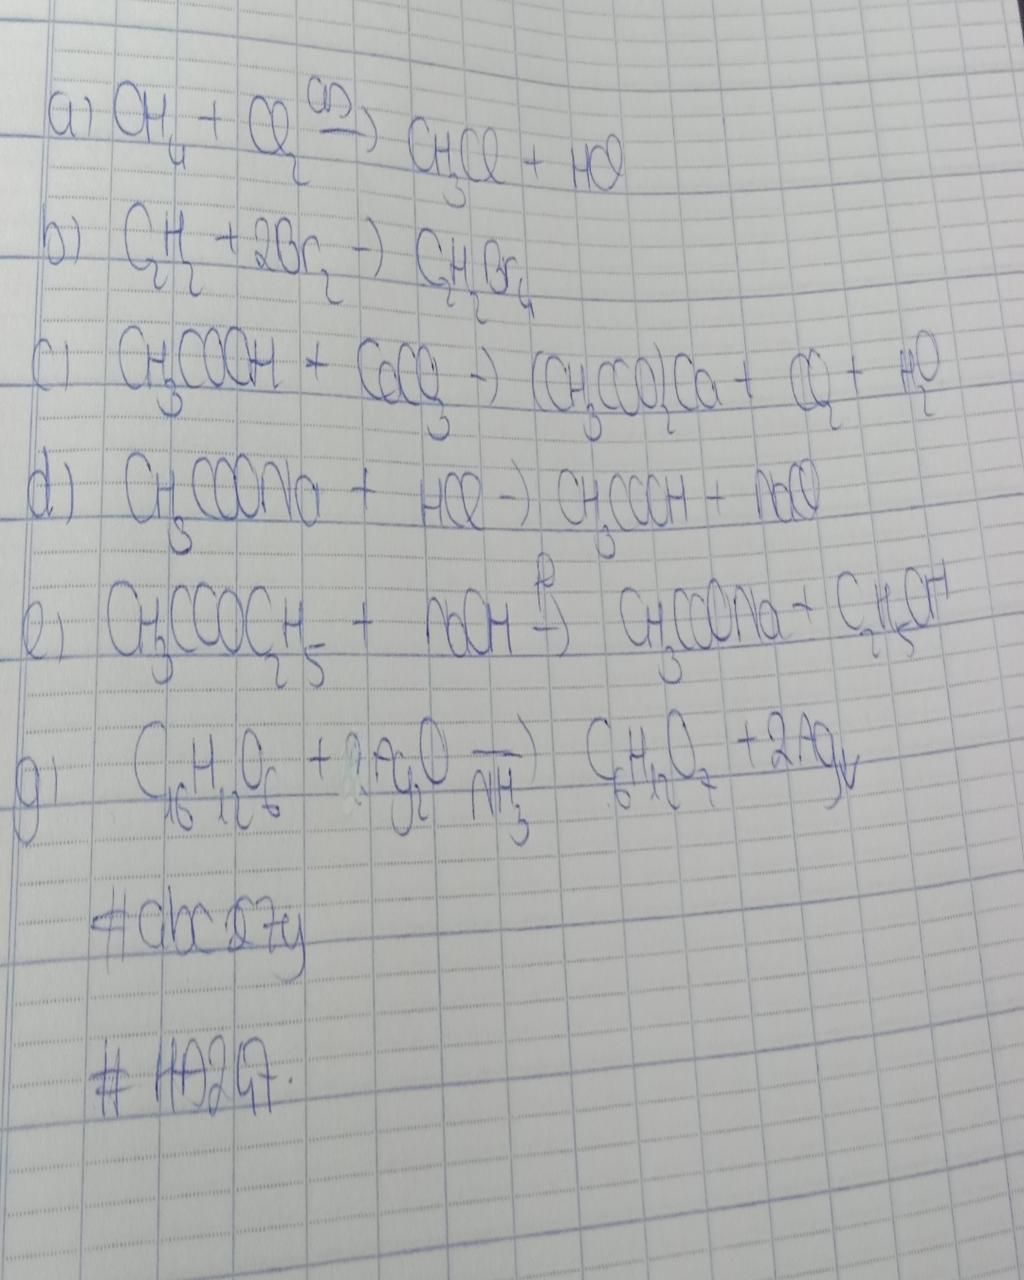 a) CH₄ + Cl₂ →(as) CH₃Cl + HCl
b) C₂H₂ + 2Br₂ → C₂H₂Br₄
c) CH₃COOH + CaCO₃ → (CH₃COO)₂Ca + CO₂ + H₂O
d) CH₃COONa + HCl → CH₃COOH + NaCl
e) CH₃COOC₂H₅ + NaOH →(t°) CH₃COONa + C₂H₅OH
g) C₁₆H₁₂O₆ + Ag₂O →(NH₃) C₆H₁₂O₇ + 2Ag↓